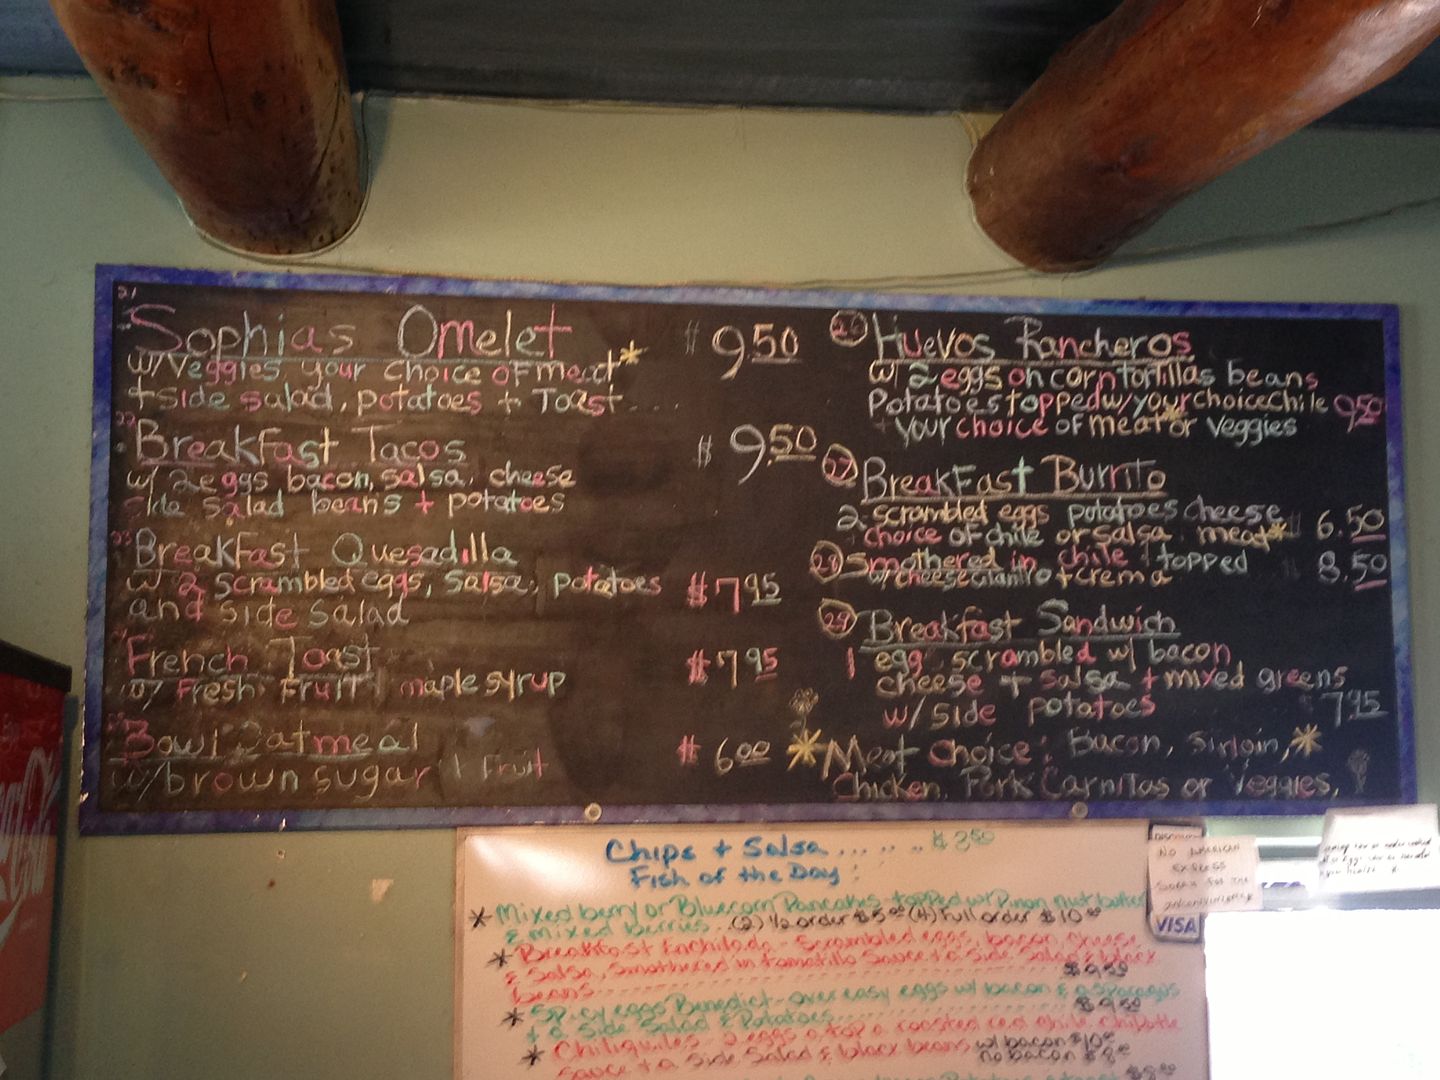 21
Sophias Omelet $ 9.50
w/Veggies your choice of meat*
+ side salad, potatoes + Toast....
22
Breakfast Tacos $ 9.50
w/ 2 eggs bacon, salsa, cheese
side salad beans + potatoes
23
Breakfast Quesadilla
w/ 2 scrambled eggs, salsa, potatoes $7.95
and side salad
French Toast $7.95
w/ Fresh Fruit, maple syrup
Bowl Oatmeal $ 6.00
w/ brown sugar + fruit
26 Huevos Rancheros
w/ 2 eggs on corn tortillas beans
Potatoes topped w/ your choice chile 9.50
your choice of meat* or Veggies
27 Breakfast Burrito
2 scrambled eggs potatoes cheese
choice of chile or salsa, meat* $ 6.50
28 Smothered in chile + topped 8.50
w/ cheese cilantro + crema
29 Breakfast Sandwich
1 egg scrambled w/ bacon
cheese + salsa + mixed greens
w/ side potatoes 7.95
*Meat Choice: Bacon, Sirloin,*
Chicken, Pork Carnitas or Veggies,
Chips + Salsa...... $3.50
Fish of the Day:
* Mixed berry or Bluecorn Pancakes topped w/ Pinon nut butter
& mixed berries..(2) 1/2 order $5.00 (4) Full order $10.00
* Breakfast Enchilada - Scrambled eggs, bacon, cheese
& Salsa, Smothered in tomatillo Sauce + a Side Salad & black
beans.......... $9.50
* Spicy eggs Benedict - over easy eggs w/ bacon & asparagus
+ a Side Salad & Potatoes....... $9.50
* Chiliquiles - 2 eggs a top a roasted red chile Chipotle
Sauce + a Side Salad & black beans w/ bacon $10.00
no bacon $8.00
NO AMERICAN
EXPRESS
SORRY FOR THE
VISA